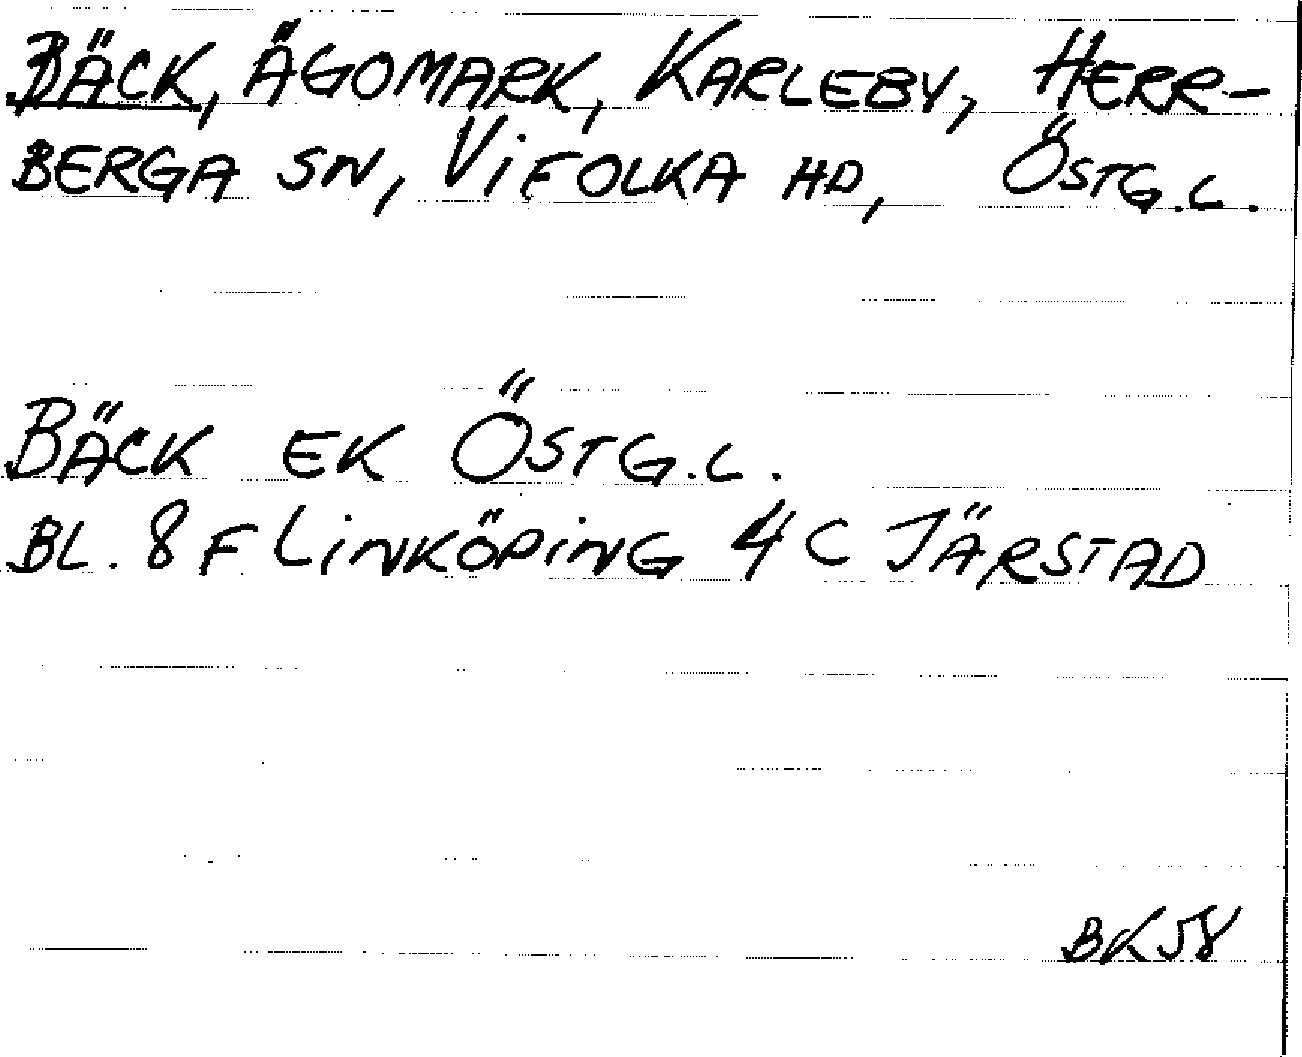 BÄCK, ÄGOMARK, KARLEBY, HERR-
BERGA SN, VIFOLKA HD, ÖSTG.L.
BÄCK EK ÖSTG.L.
BL. 8 F LINKÖPING 4 C JÄRSTAD
BK58